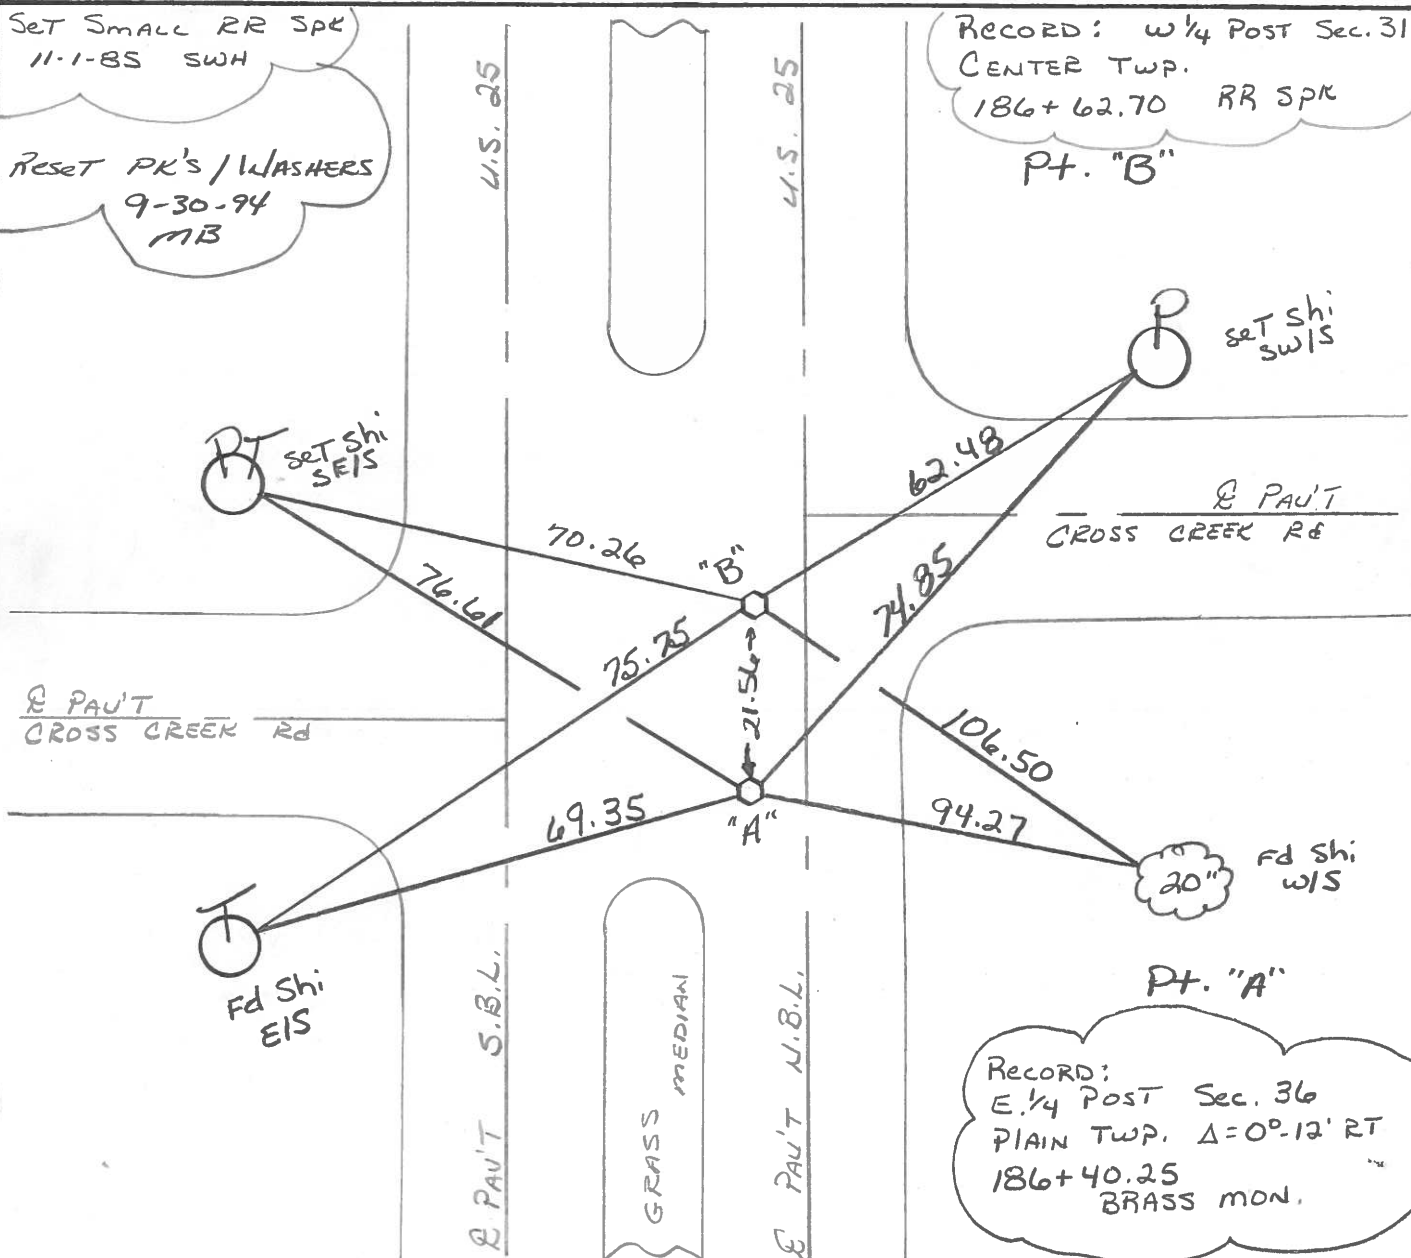 SET SMALL RR SPK
11-1-85 SWH
RESET PK'S / WASHERS
9-30-94
MB
U.S. 25
U.S. 25
RECORD: W 1/4 POST Sec. 31
CENTER TWP.
186+62.70 RR SPK
Pt. "B"
P
SET Shi
SW/S
PT
SET Shi
SE/S
62.48
℄ PAV'T
CROSS CREEK Rd
70.26
"B"
76.61
74.85
75.75
21.56
℄ PAV'T
CROSS CREEK Rd
106.50
69.35
"A"
94.27
20"
Fd Shi
W/S
T
Fd Shi
E/S
Pt. "A"
RECORD:
E. 1/4 POST Sec. 36
PLAIN TWP. Δ=0°-12' RT
186+40.25
BRASS MON.
℄ PAV'T S.B.L.
GRASS MEDIAN
℄ PAV'T N.B.L.